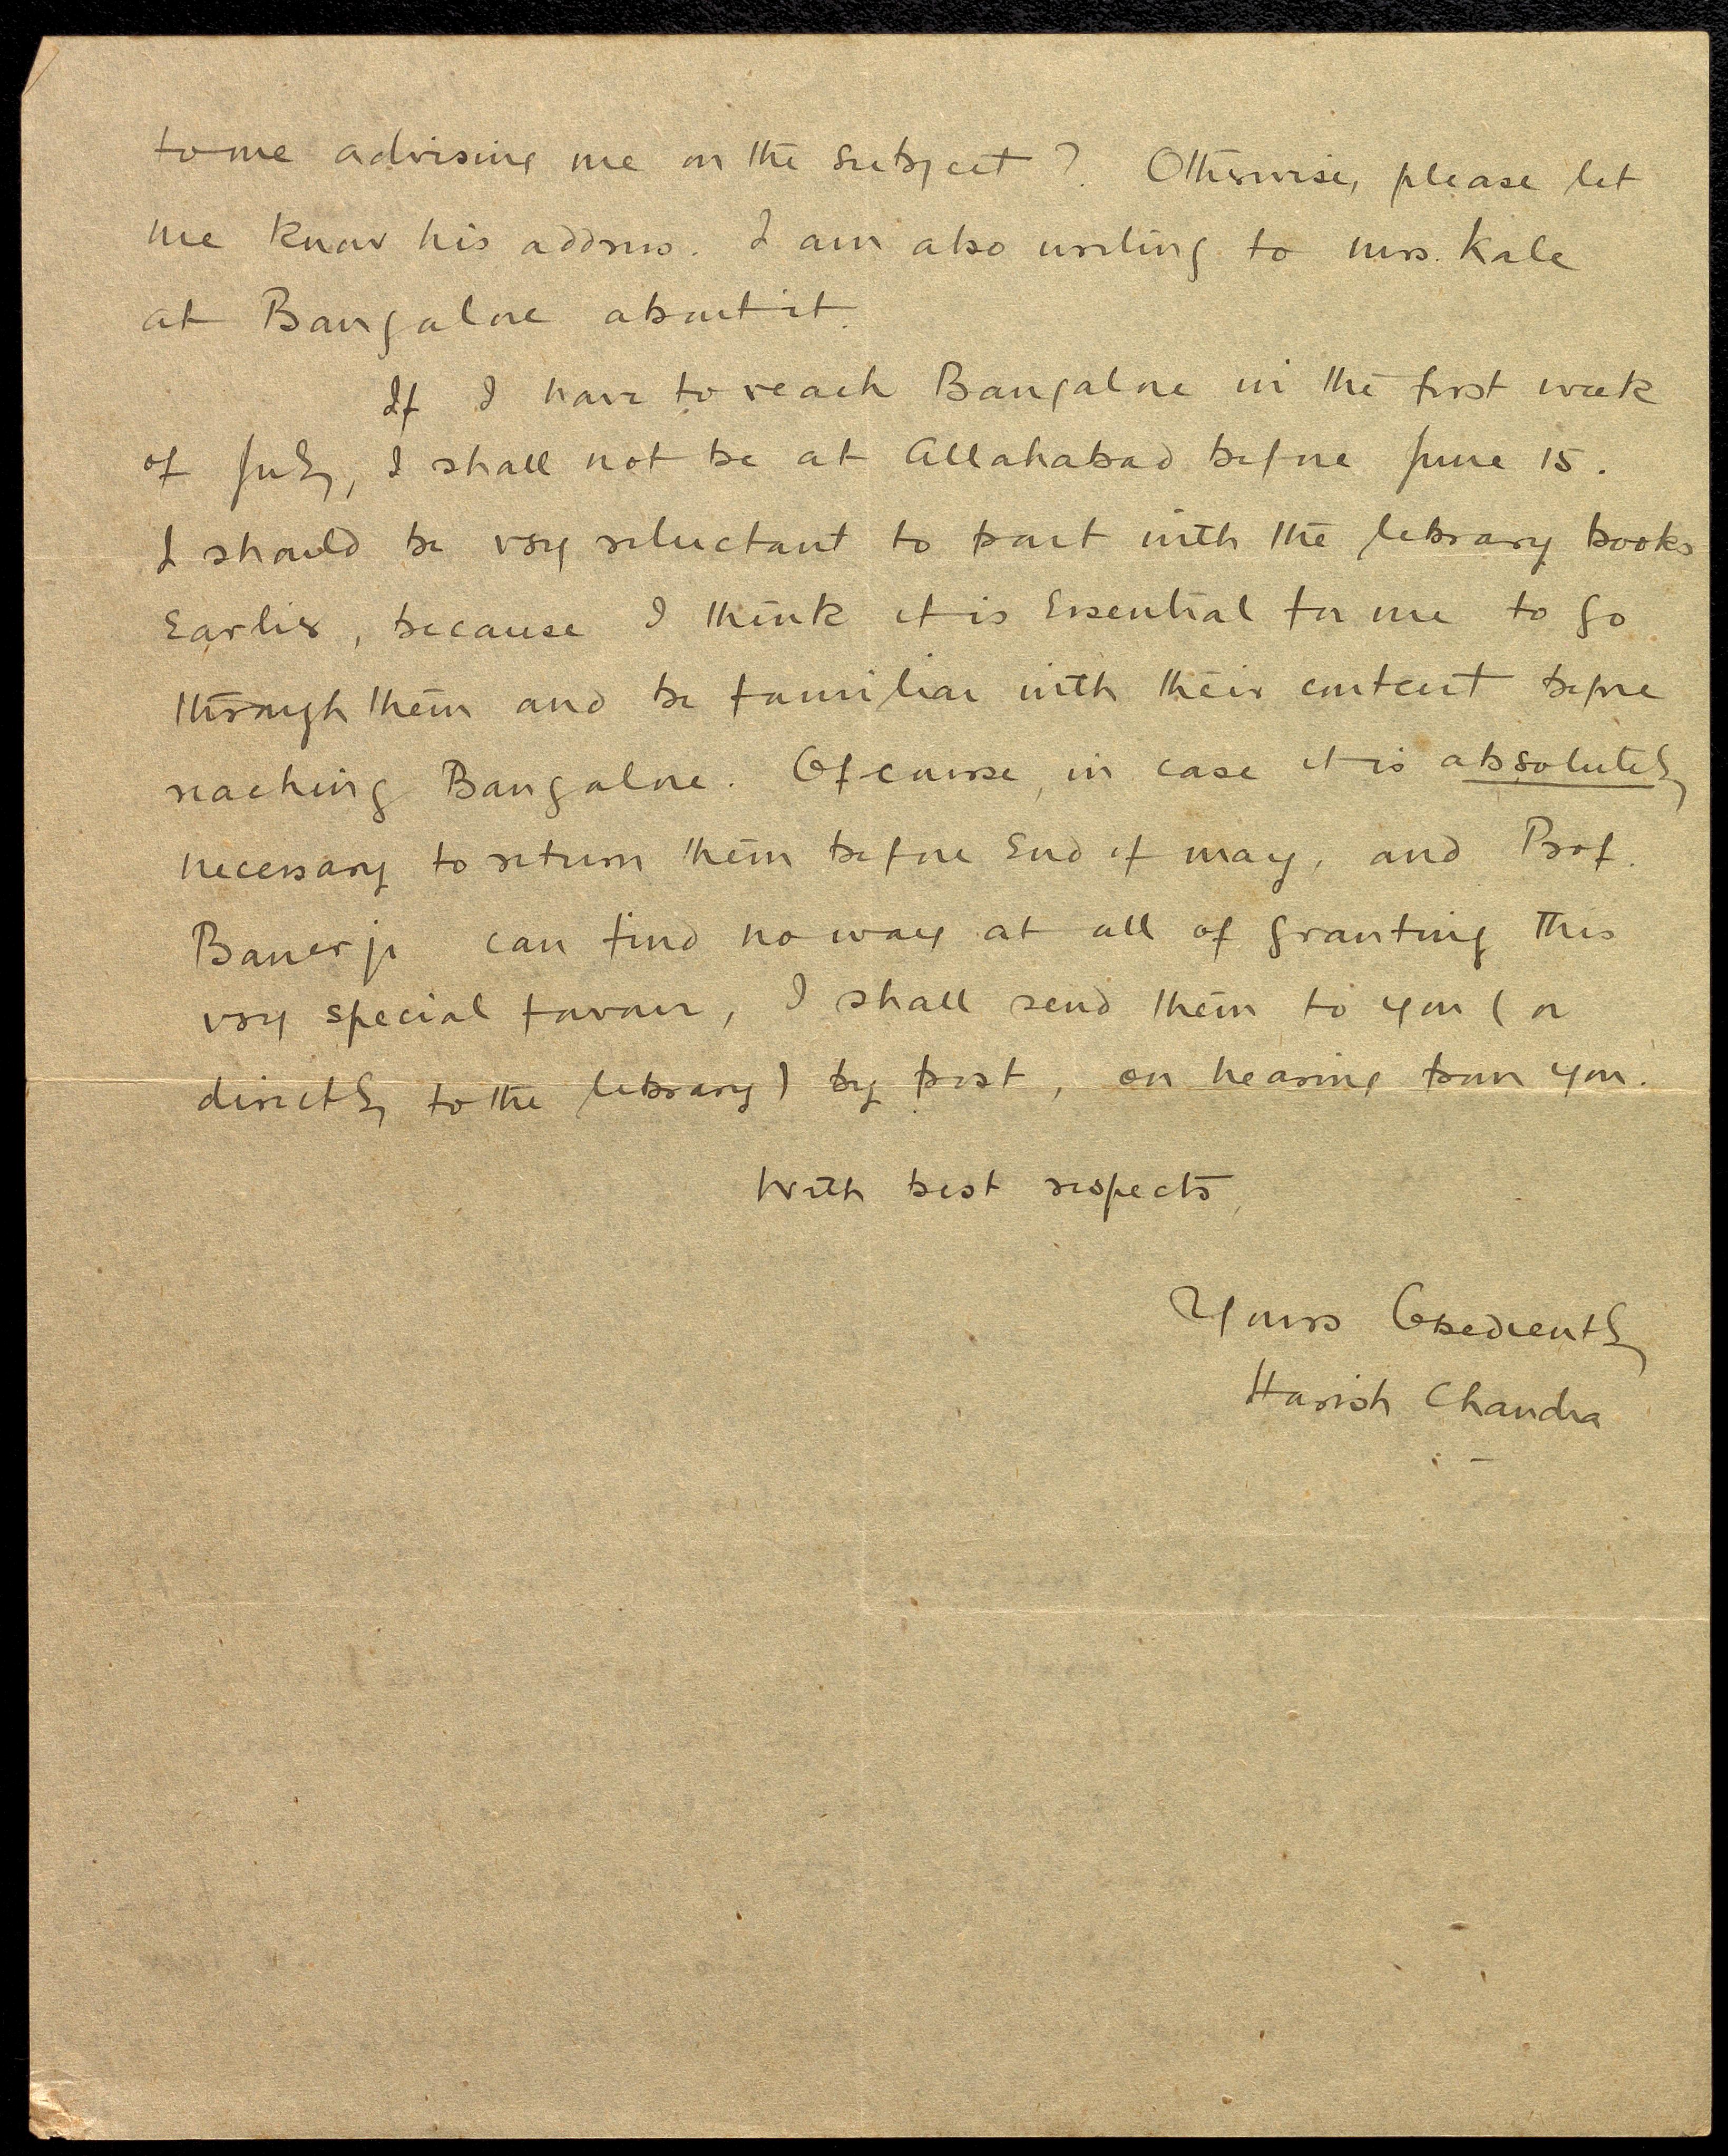 to me advising me on the subject? Otherwise, please let
me know his address. I am also writing to Mrs. Kale
at Bangalore about it.
If I have to reach Bangalore in the first week
of July, I shall not be at Allahabad before June 15.
I should be very reluctant to part with the library books
Earlier, because I think it is Essential for me to go
through them and be familiar with their content before
reaching Bangalore. Of course, in case it is absolutely
necessary to return them before End of May, and Prof.
Banerji can find no way at all of granting this
very special favour, I shall send them to you (or
directly to the library) by post, on hearing from you.
With best respects,
Yours Obediently
Harish Chandra